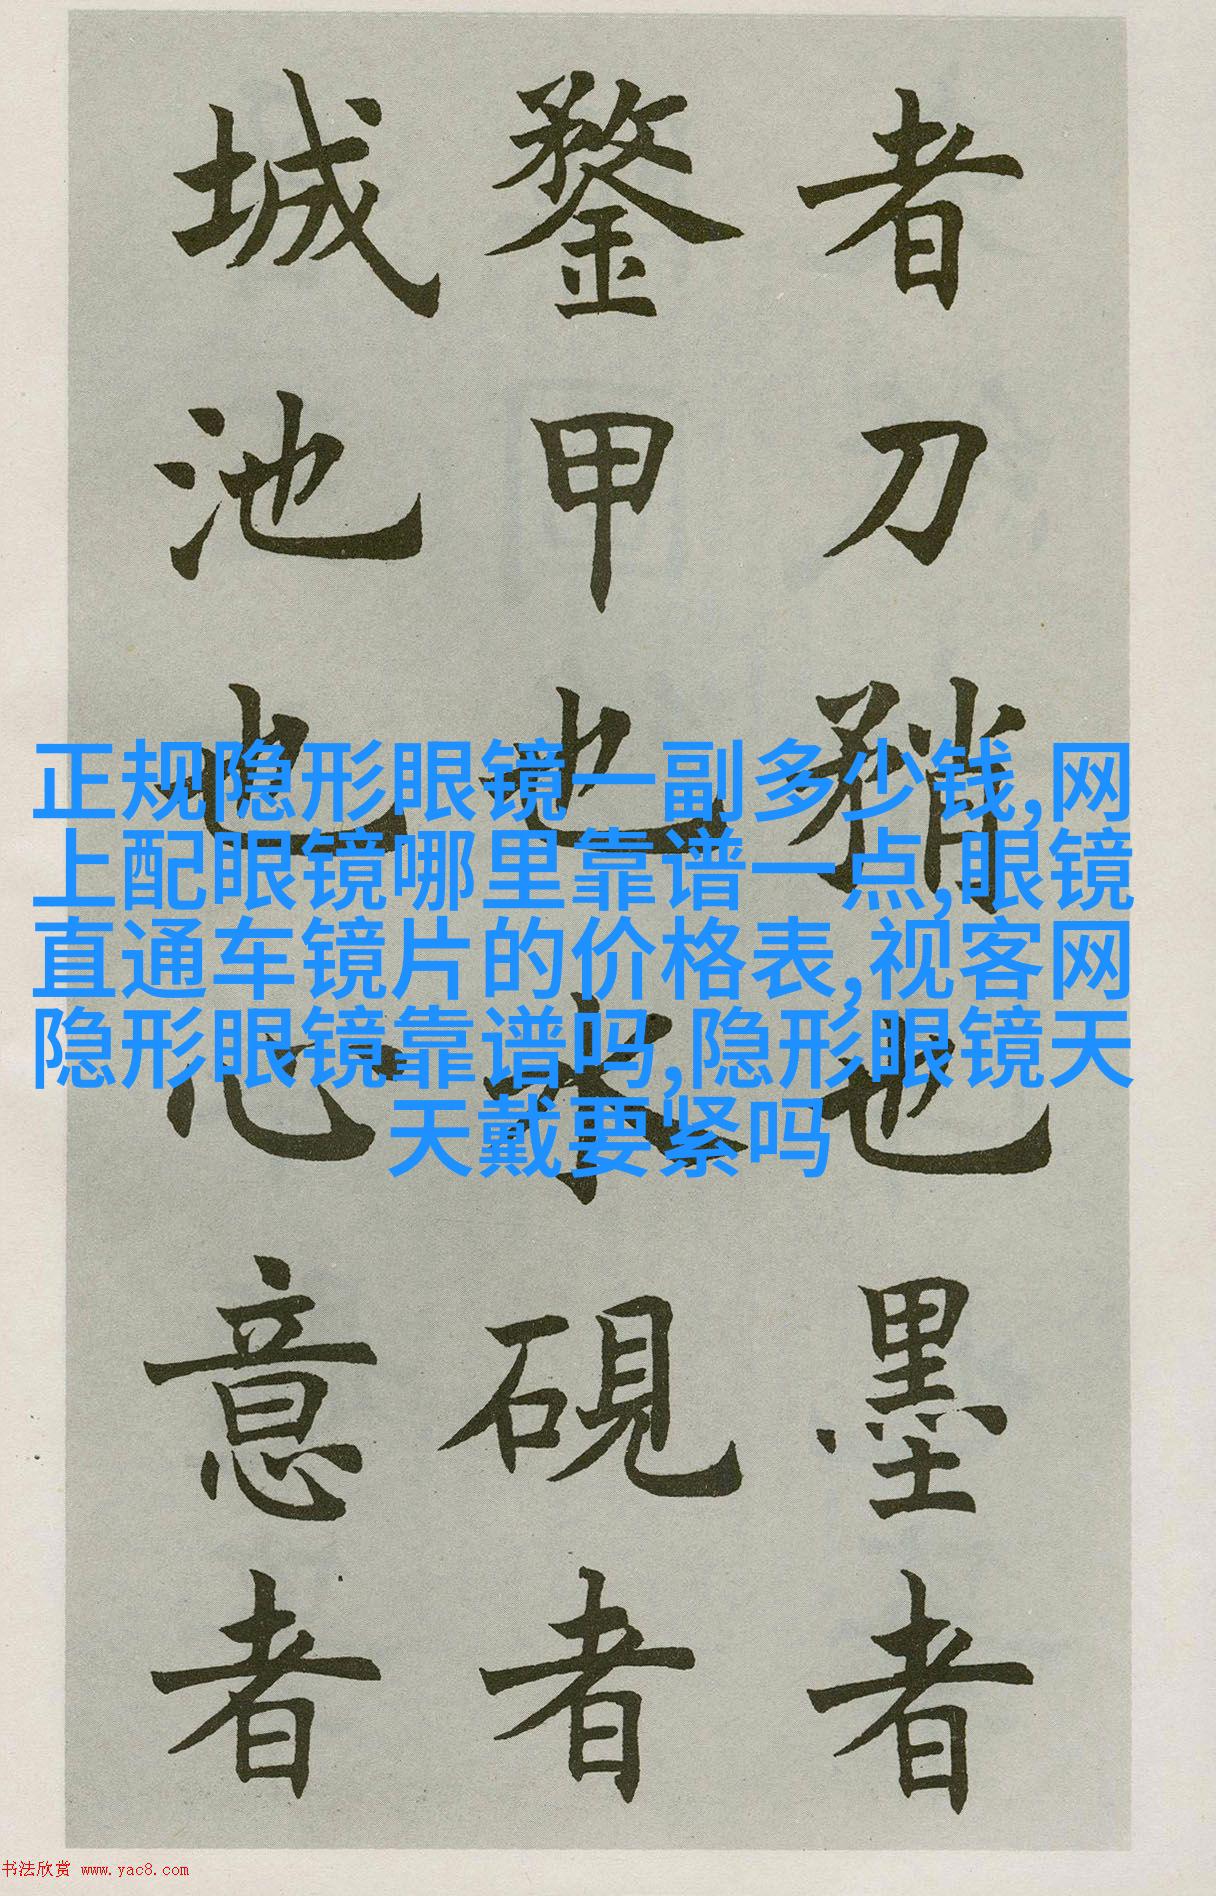 者刀矟也墨者
鍪甲也水硯者
城池也心意者
正规隐形眼镜一副多少钱,网
上配眼镜哪里靠谱一点,眼镜
直通车镜片的价格表,视客网
隐形眼镜靠谱吗,隐形眼镜天
天戴要紧吗
书法欣赏 www.yac8.com